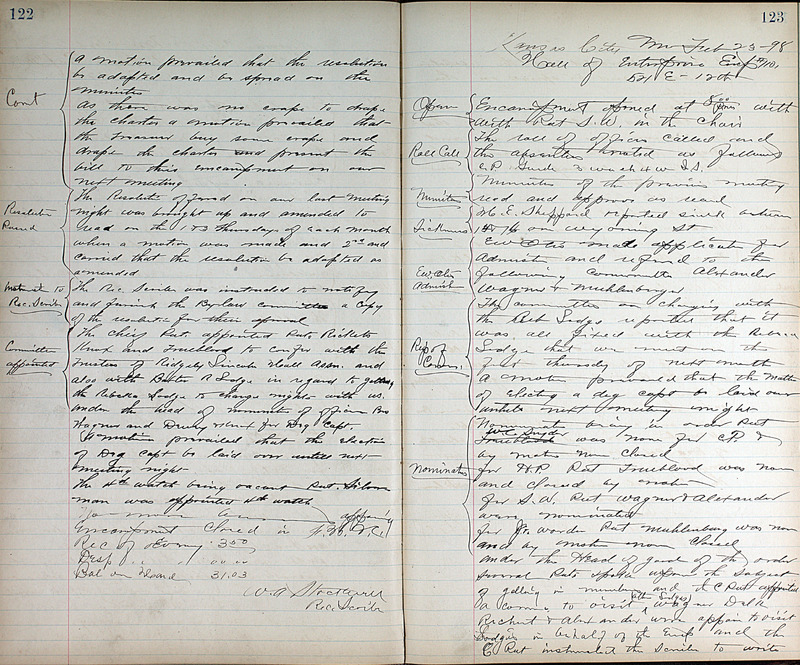 122
a motion prevailed that the resolution
be adopted and be spread on the
minutes
Cont
As there was no crape to drape
the charter a motion prevailed that
the treasurer buy some crape and
drape the charter and present the
bill to this encampment on our
next meeting
Resolution
Passed
The Resolution offered on our last meeting
night was brought up and amended to
read on the 1 & 3 thursdays of each month
when a motion was made and 2nd and
carried that the resolution be adopted as
amended
Instruct to
Rec. Scribe
The Rec. Scribe was instructed to notify
and furnish the Bylaws committee a copy
of the resolution for their approval
Committee
appointed
The Chief Pat. appointed Pats. Ricketts
and Trueblood to confer with the
Trustees of Ridgely Lincoln Hall Assn. and
also with R Lodge in regard to getting
the Rebeka Lodge to change nights with us.
under the head of nominations of officers Bro
Wagner and for Deg Capt.
A motion prevailed that the election
of Deg Capt be laid over until next
meeting night
The 4th watch being vacant Pat.
man was appointed 4th watch
Encampment Closed in
Rec of Evening 3.00
Disp " " 00.00
Bal on Hand 31.03
Rec. Scribe
123
Kansas City Mo Feb 23-98
Hall of Enterprise Enc #10,
521 E- 12th
Open
Encampment opened at 8:00 with
with Pat S.W. in the chair
Roll Call
The roll of officers called and
the absentees noted as follows
C.P. Guide 3 watch 4 W I.S.
Minutes
Minutes of the previous meeting
read and approved as read
Sickness
M. E. Sheppard reported sick between
14 & 16 on Wyoming St
Ew. Otis
Admish
Ew Otis made application for
Admish and referred to the
following committee Alexander
Wagner & Muhlenburg
Rep of
Comm.
The committee on changing with
the Reb Lodge reported that it
was all fixed with the Rebeca
Lodge that we meet on the
first thursday of next month
A motion prevailed that the matter
of electing a deg capt be laid over
until next meeting night
Nominations
Nominations being in order Pat
Snyder was nom for C.P. &
by motion nom closed
for H.P. Pat Trueblood was nom
and closed by motion
for S.W. Pat Wagner & Alexander
were nominated
for Jr. warden Pat Muhlenburg was nom
and by motion nom closed
under the Head of good of the order
several Pats spoke upon the subject
of getting in members and the C Pat appointed
a comm. to visit Wagner
Richert & Alexander were appoin to visit
Lodges in behalf of the Encp and the
C Pat instructed the Scribe to write